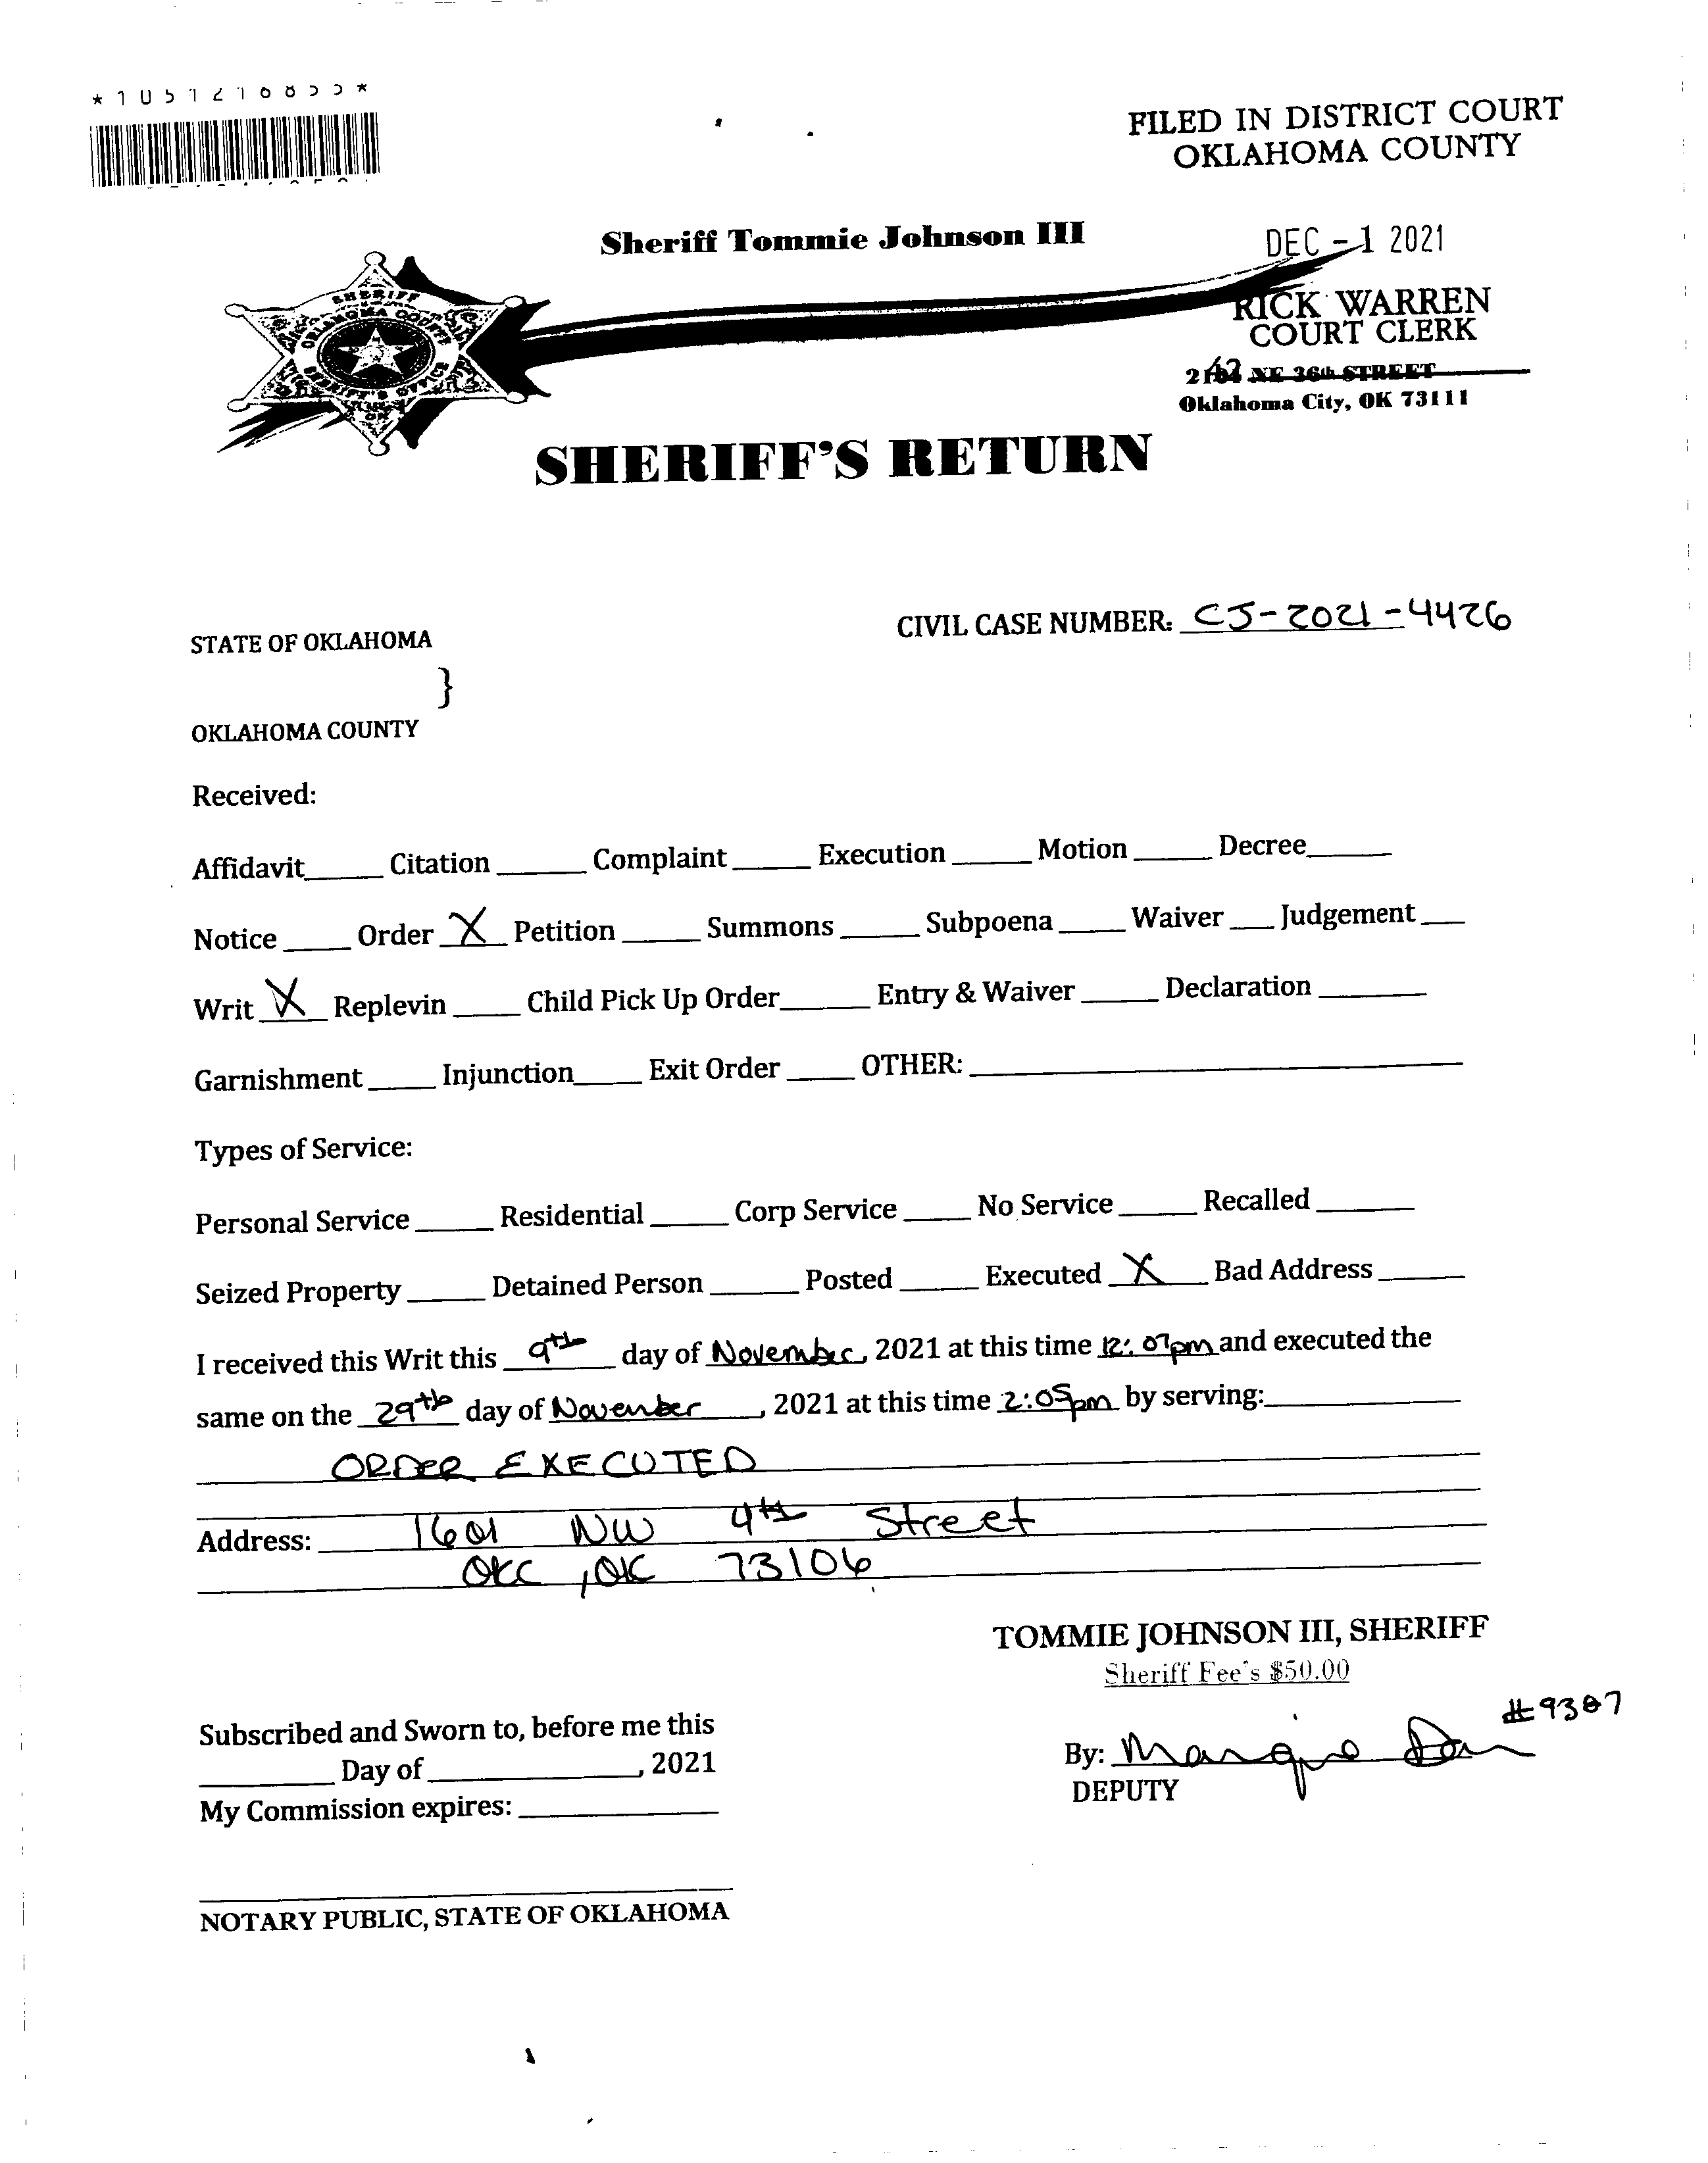 FILED IN DISTRICT COURT
OKLAHOMA COUNTY
Sheriff Tommie Johnson III
DEC - 1 2021
RICK WARREN
COURT CLERK
42
NE 36th STREET
Oklahoma City, OK 73111
SHERIFF
OKLAHOMA COUNTY
SHERIFF'S OFFICE
SHERIFF'S RETURN
CIVIL CASE NUMBER: CJ-2021-4426
STATE OF OKLAHOMA
}
OKLAHOMA COUNTY
Received:
Affidavit_____ Citation _____ Complaint _____ Execution _____ Motion _____ Decree_____
Notice _____ Order X Petition _____ Summons _____ Subpoena _____ Waiver ___ Judgement ___
Writ X Replevin _____ Child Pick Up Order_____ Entry & Waiver _____ Declaration _____
Garnishment _____ Injunction_____ Exit Order _____ OTHER: _____
Types of Service:
Personal Service _____ Residential _____ Corp Service _____ No Service _____ Recalled _____
Seized Property _____ Detained Person _____ Posted _____ Executed X Bad Address _____
I received this Writ this 9th day of November, 2021 at this time 12:07pm and executed the
same on the 29th day of November, 2021 at this time 2:05pm by serving:_____
ORDER EXECUTED
Address: 1601 NW 4th Street
OKC, OK 73106
TOMMIE JOHNSON III, SHERIFF
Sheriff Fee's $50.00
Subscribed and Sworn to, before me this
_____ Day of _____, 2021
My Commission expires: _____
By: #9387
DEPUTY
NOTARY PUBLIC, STATE OF OKLAHOMA